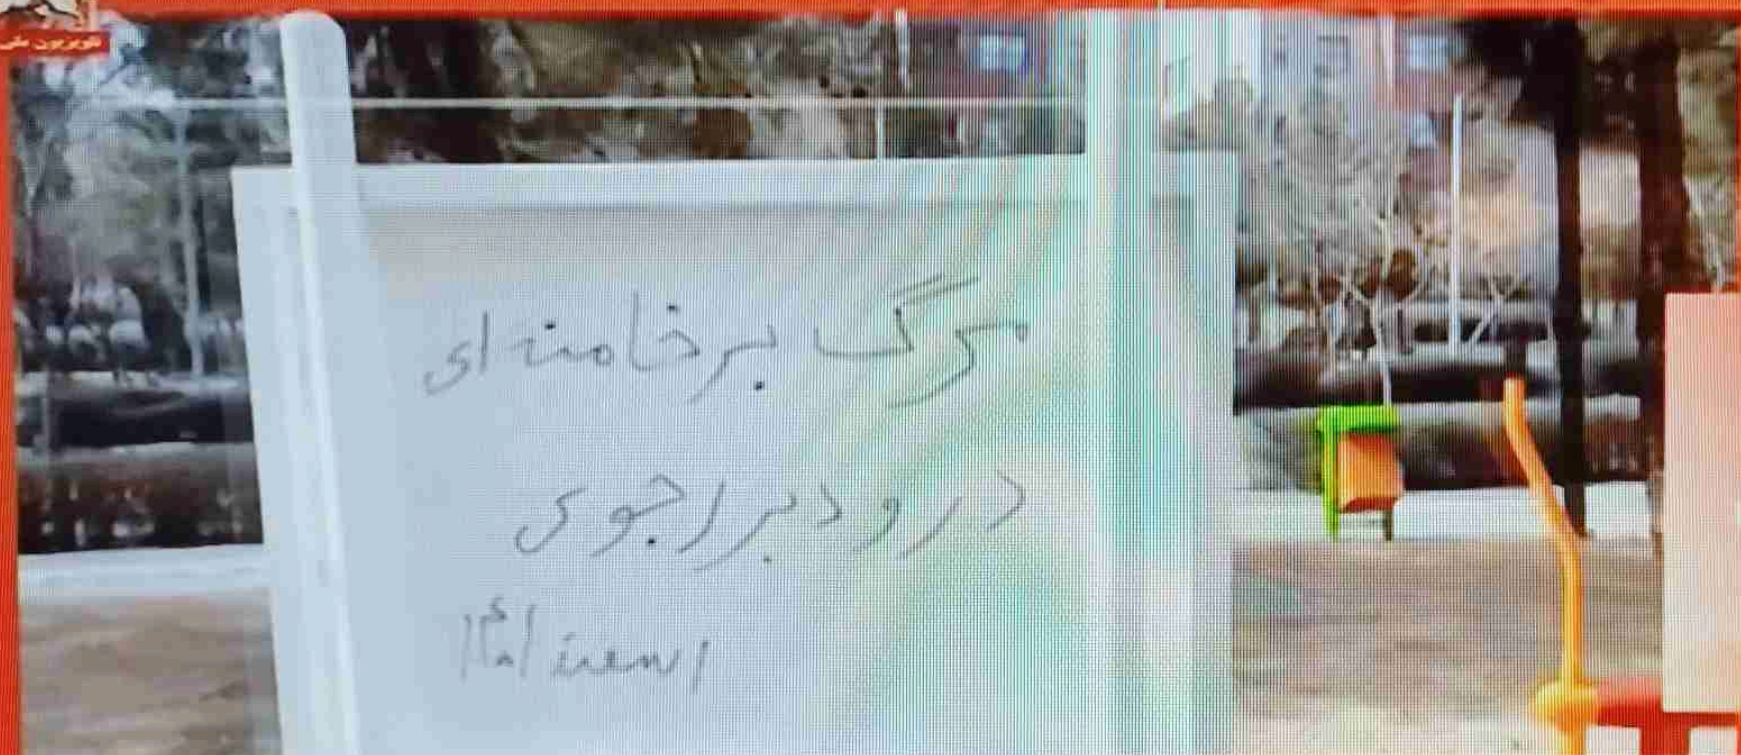 تلویزیون ملی
مرگ بر خامنه ای
درود بر رجوی
اسفند ۱۴۰۱